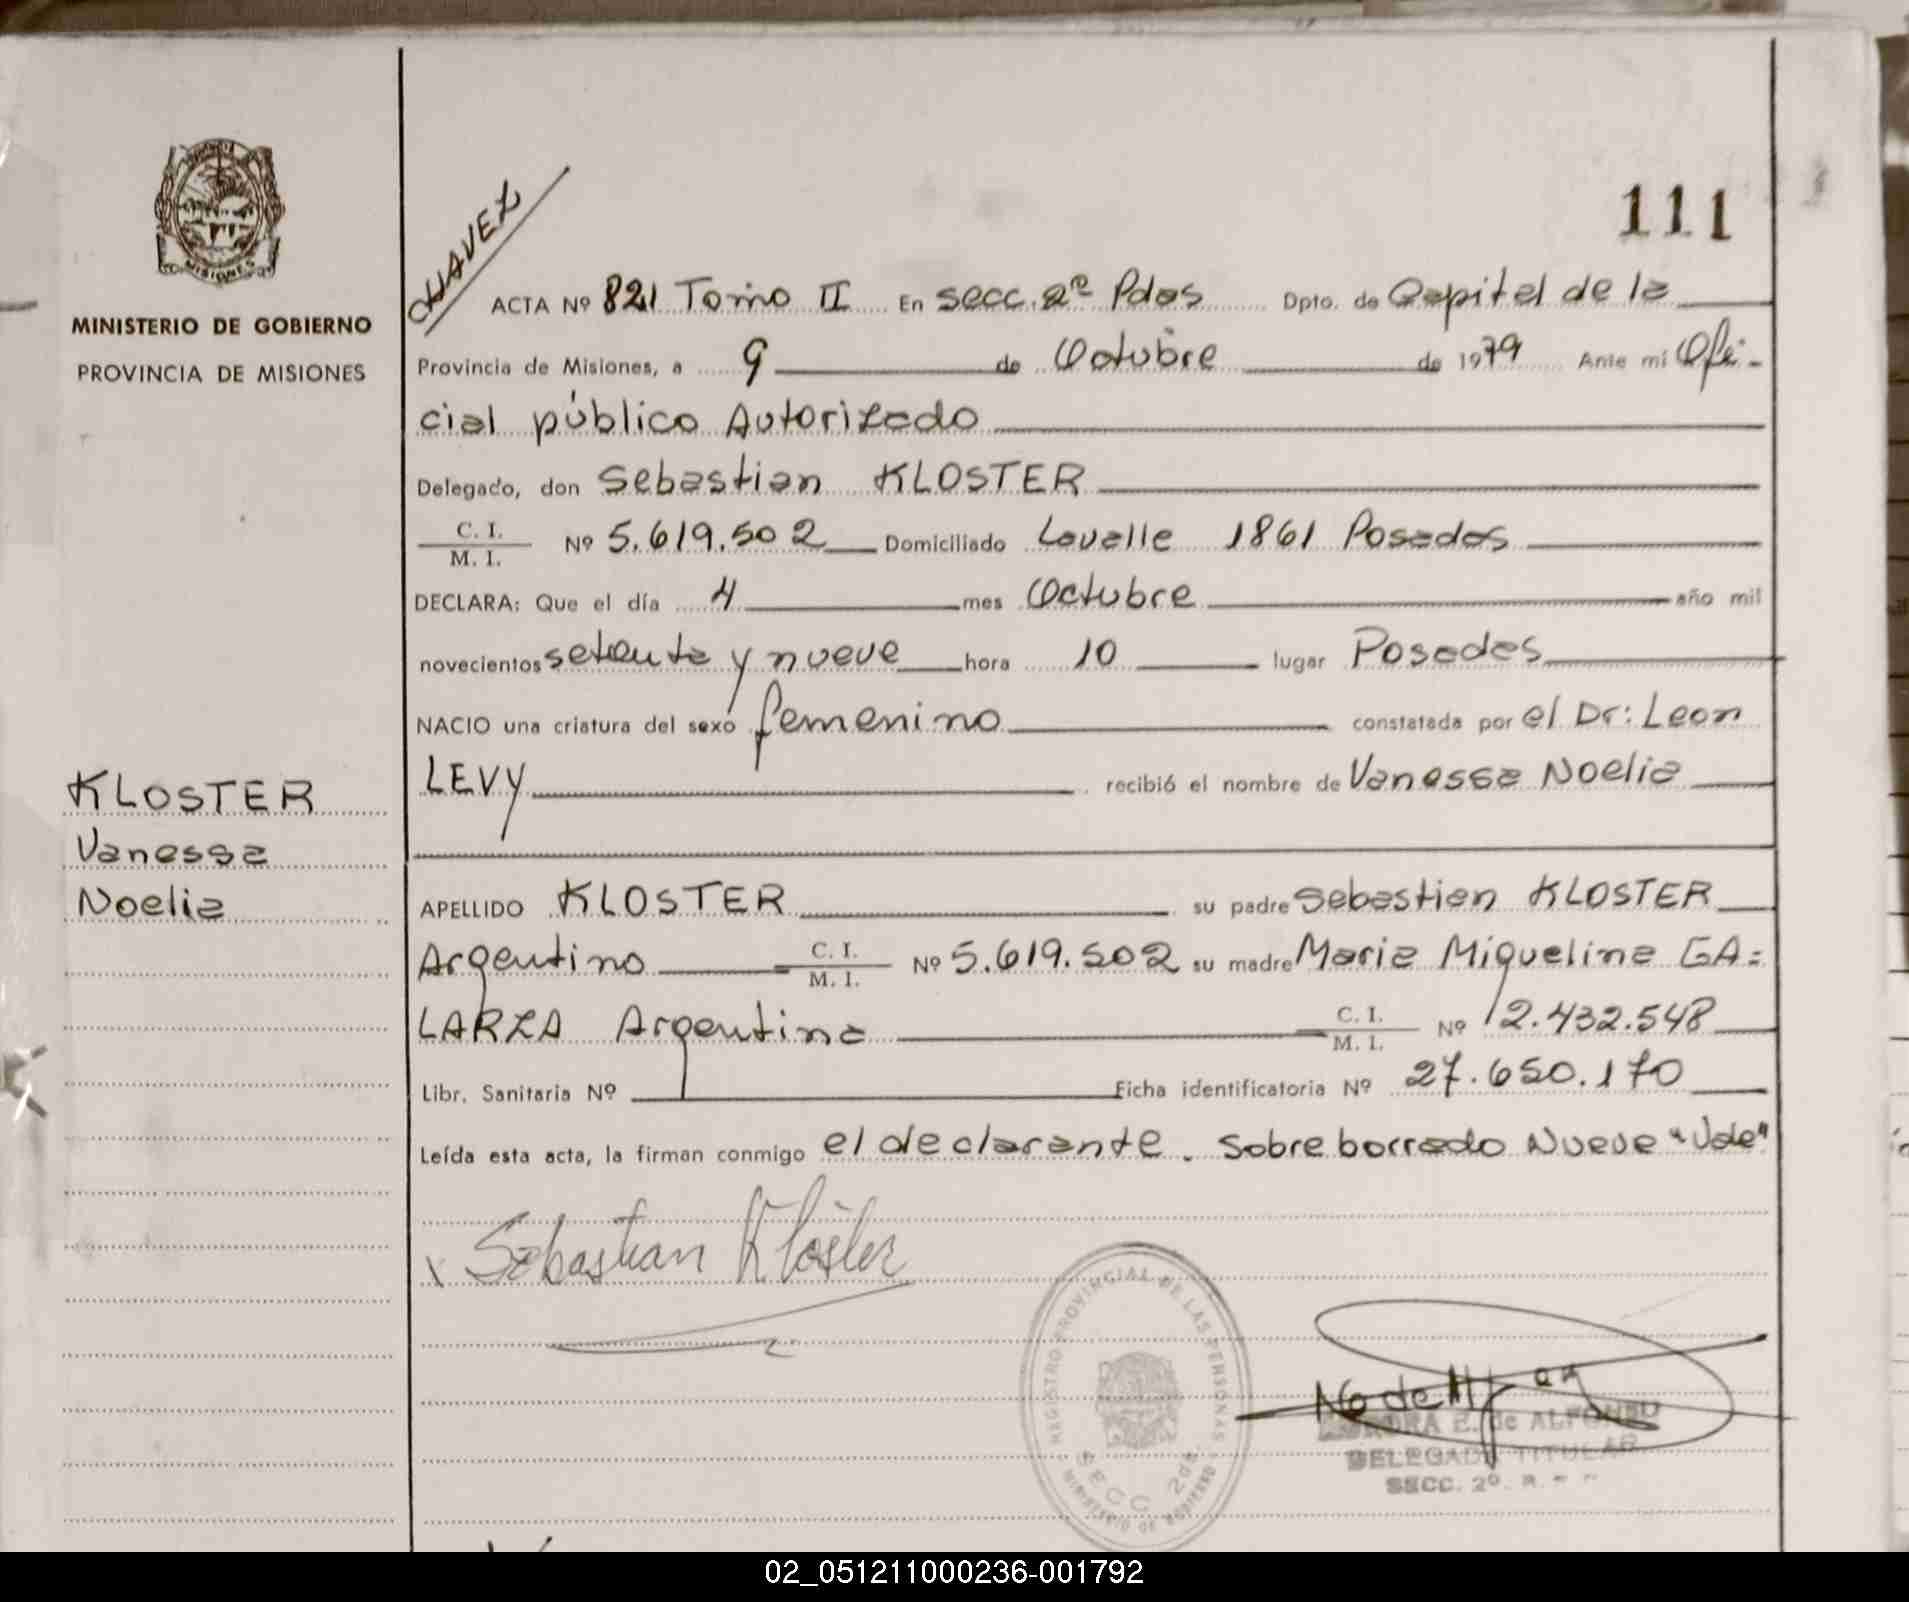 111
CHAVEZ
MINISTERIO DE GOBIERNO
PROVINCIA DE MISIONES
ACTA Nº 821 Tomo II En secc. 2º Pdas Dpto. de Capital de la
Provincia de Misiones, a 9 de Octubre de 1979 Ante mi Ofi-
cial público Autorizado
Delegado, don Sebastian KLOSTER
C. I.
M. I. Nº 5.619.502 Domiciliado Lavalle 1861 Posadas
DECLARA: Que el día 4 mes Octubre año mil
novecientos setenta y nueve hora 10 lugar Posadas
NACIO una criatura del sexo femenino constatada por el Dr: Leon
LEVY recibió el nombre de Vanessa Noelia
KLOSTER
Vanessa
Noelia
APELLIDO KLOSTER su padre Sebastian KLOSTER
Argentino C. I.
M. I. Nº 5.619.502 su madre Maria Miquelina GA=
LARZA Argentina C. I.
M. I. Nº 12.432.548
Libr. Sanitaria Nº Ficha identificatoria Nº 27.650.170
Leída esta acta, la firman conmigo el declarante. Sobre borrado Nueve "Vale"
Sebastian Kloster
REGISTRO PROVINCIAL DE LAS PERSONAS
SECC 2da.
MINISTERIO DE GOBIERNO
E. de ALFONSO
DELEGADA TITULAR
SECC. 2º.
02_051211000236-001792